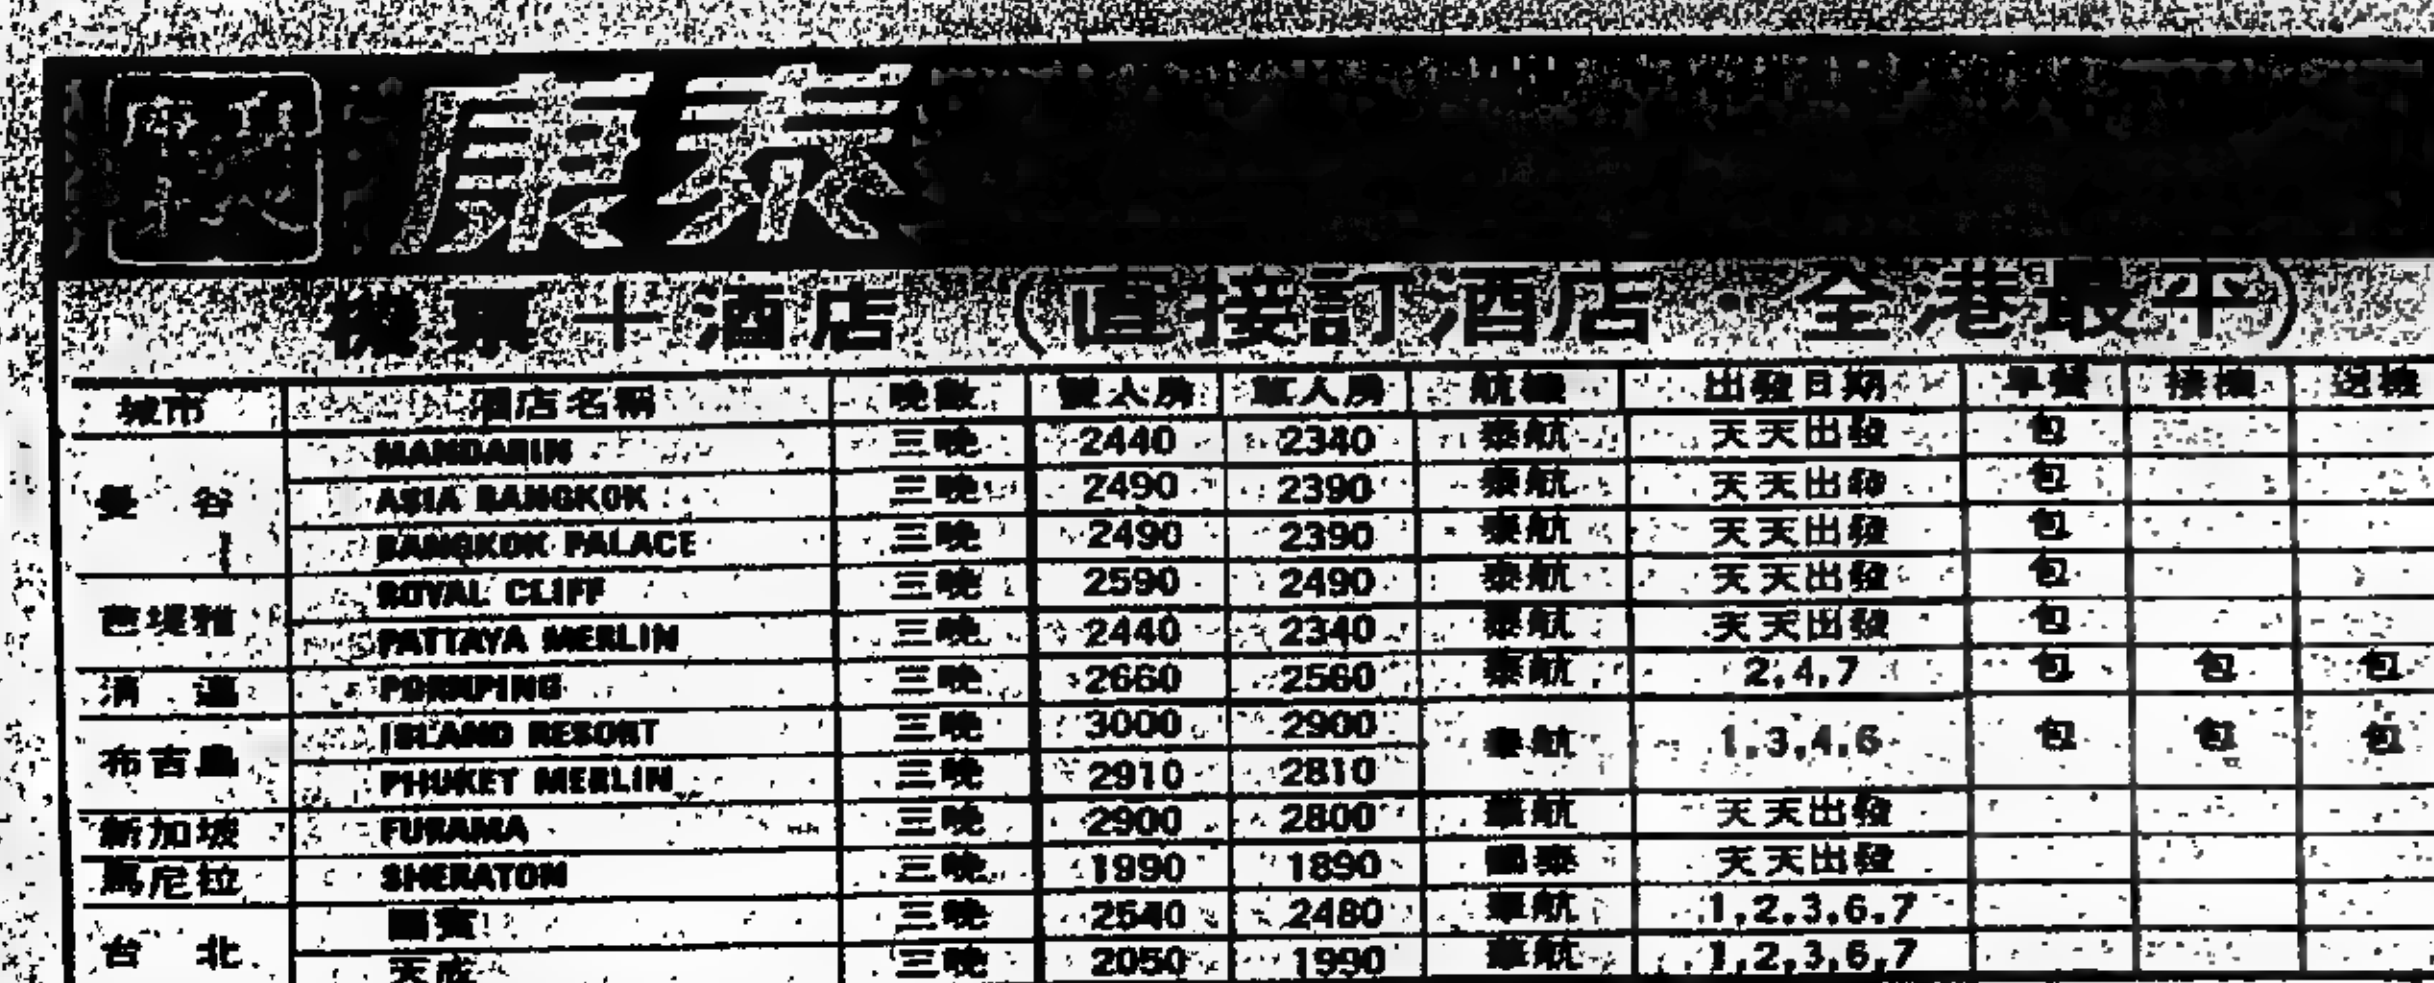 康泰
機票+酒店 (直接訂酒店·全港最平)
城市 酒店名稱 晚數 雙人房 單人房 航機 出發日期 早餐 接機 送機
曼谷 MANDARIN 三晚 2440 2340 泰航 天天出發 包
ASIA BANGKOK 三晚 2490 2390 泰航 天天出發 包
BANGKOK PALACE 三晚 2490 2390 泰航 天天出發 包
芭堤雅 ROYAL CLIFF 三晚 2590 2490 泰航 天天出發 包
PATTAYA MERLIN 三晚 2440 2340 泰航 天天出發 包
清邁 PORNPING 三晚 2660 2560 泰航 2,4,7 包 包 包
布吉島 ISLAND RESORT 三晚 3000 2900 泰航 1,3,4,6 包 包 包
PHUKET MERLIN 三晚 2910 2810
新加坡 FURAMA 三晚 2900 2800 天天出發
馬尼拉 SHERATON 三晚 1990 1890 國泰 天天出發
台北 國賓 三晚 2540 2480 華航 1,2,3,6,7
天成 三晚 2050 1990 華航 1,2,3,6,7